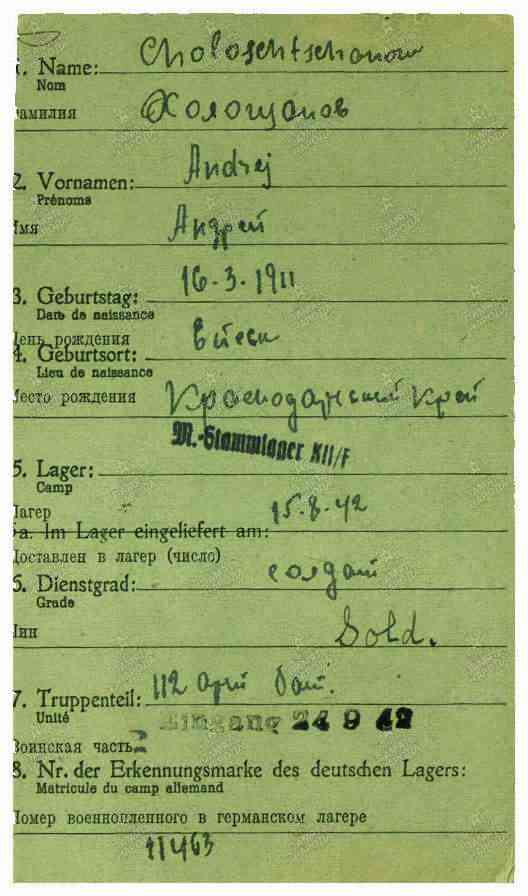 1. Name: Choloschtschanow
Nom
Фамилия Холощанов
2. Vornamen: Andrej
Prénoms
Имя Андрей
3. Geburtstag: 16-3-1911
Date de naissance
День рождения
4. Geburtsort:
Lieu de naissance
Место рождения Краснодарский край
M.-Stammlager XII/F
5. Lager:
Camp
Лагер
15.8.42
5a. Im Lager eingeliefert am:
Доставлен в лагер (число)
солдат
6. Dienstgrad:
Grade
Чин Sold.
7. Truppenteil: 112 арт бат.
Unité
Eingang 24 9 42
Воинская часть
8. Nr. der Erkennungsmarke des deutschen Lagers:
Matricule du camp allemand
Номер военнопленного в германском лагере
11463